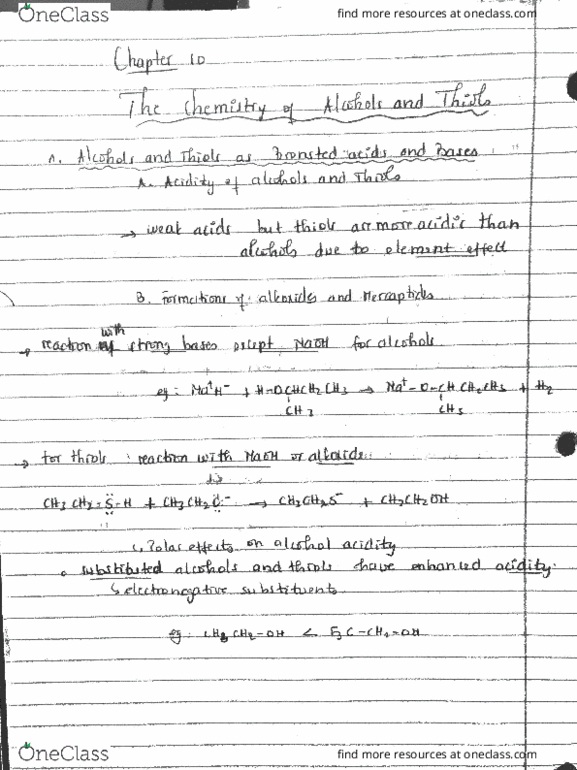 OneClass
find more resources at oneclass.com
Chapter 10
The Chemistry of Alcohols and Thiols
1. Alcohols and Thiols as Bronsted acids and Bases
A. Acidity of alcohols and Thiols
→ weak acids but thiols are more acidic than
alcohols due to element effect
B. Formations of alkoxides and Mercaptides
→ reaction with strong bases except NaOH for alcohols
eg: Na⁺H⁻ + H-OCHCH₂CH₃ → Na⁺-O-CH CH₂CH₃ + H₂
CH₃ CH₃
→ for thiols : reaction with NaOH or alkoxide
CH₃CH₂-S-H + CH₃CH₂O⁻ → CH₃CH₂S⁻ + CH₃CH₂OH
C. Polar effects on alcohol acidity
substituted alcohols and thiols have enhanced acidity.
↳ electronegative substituents
eg: CH₃CH₂-OH < F₃C-CH₂-OH
OneClass
find more resources at oneclass.com